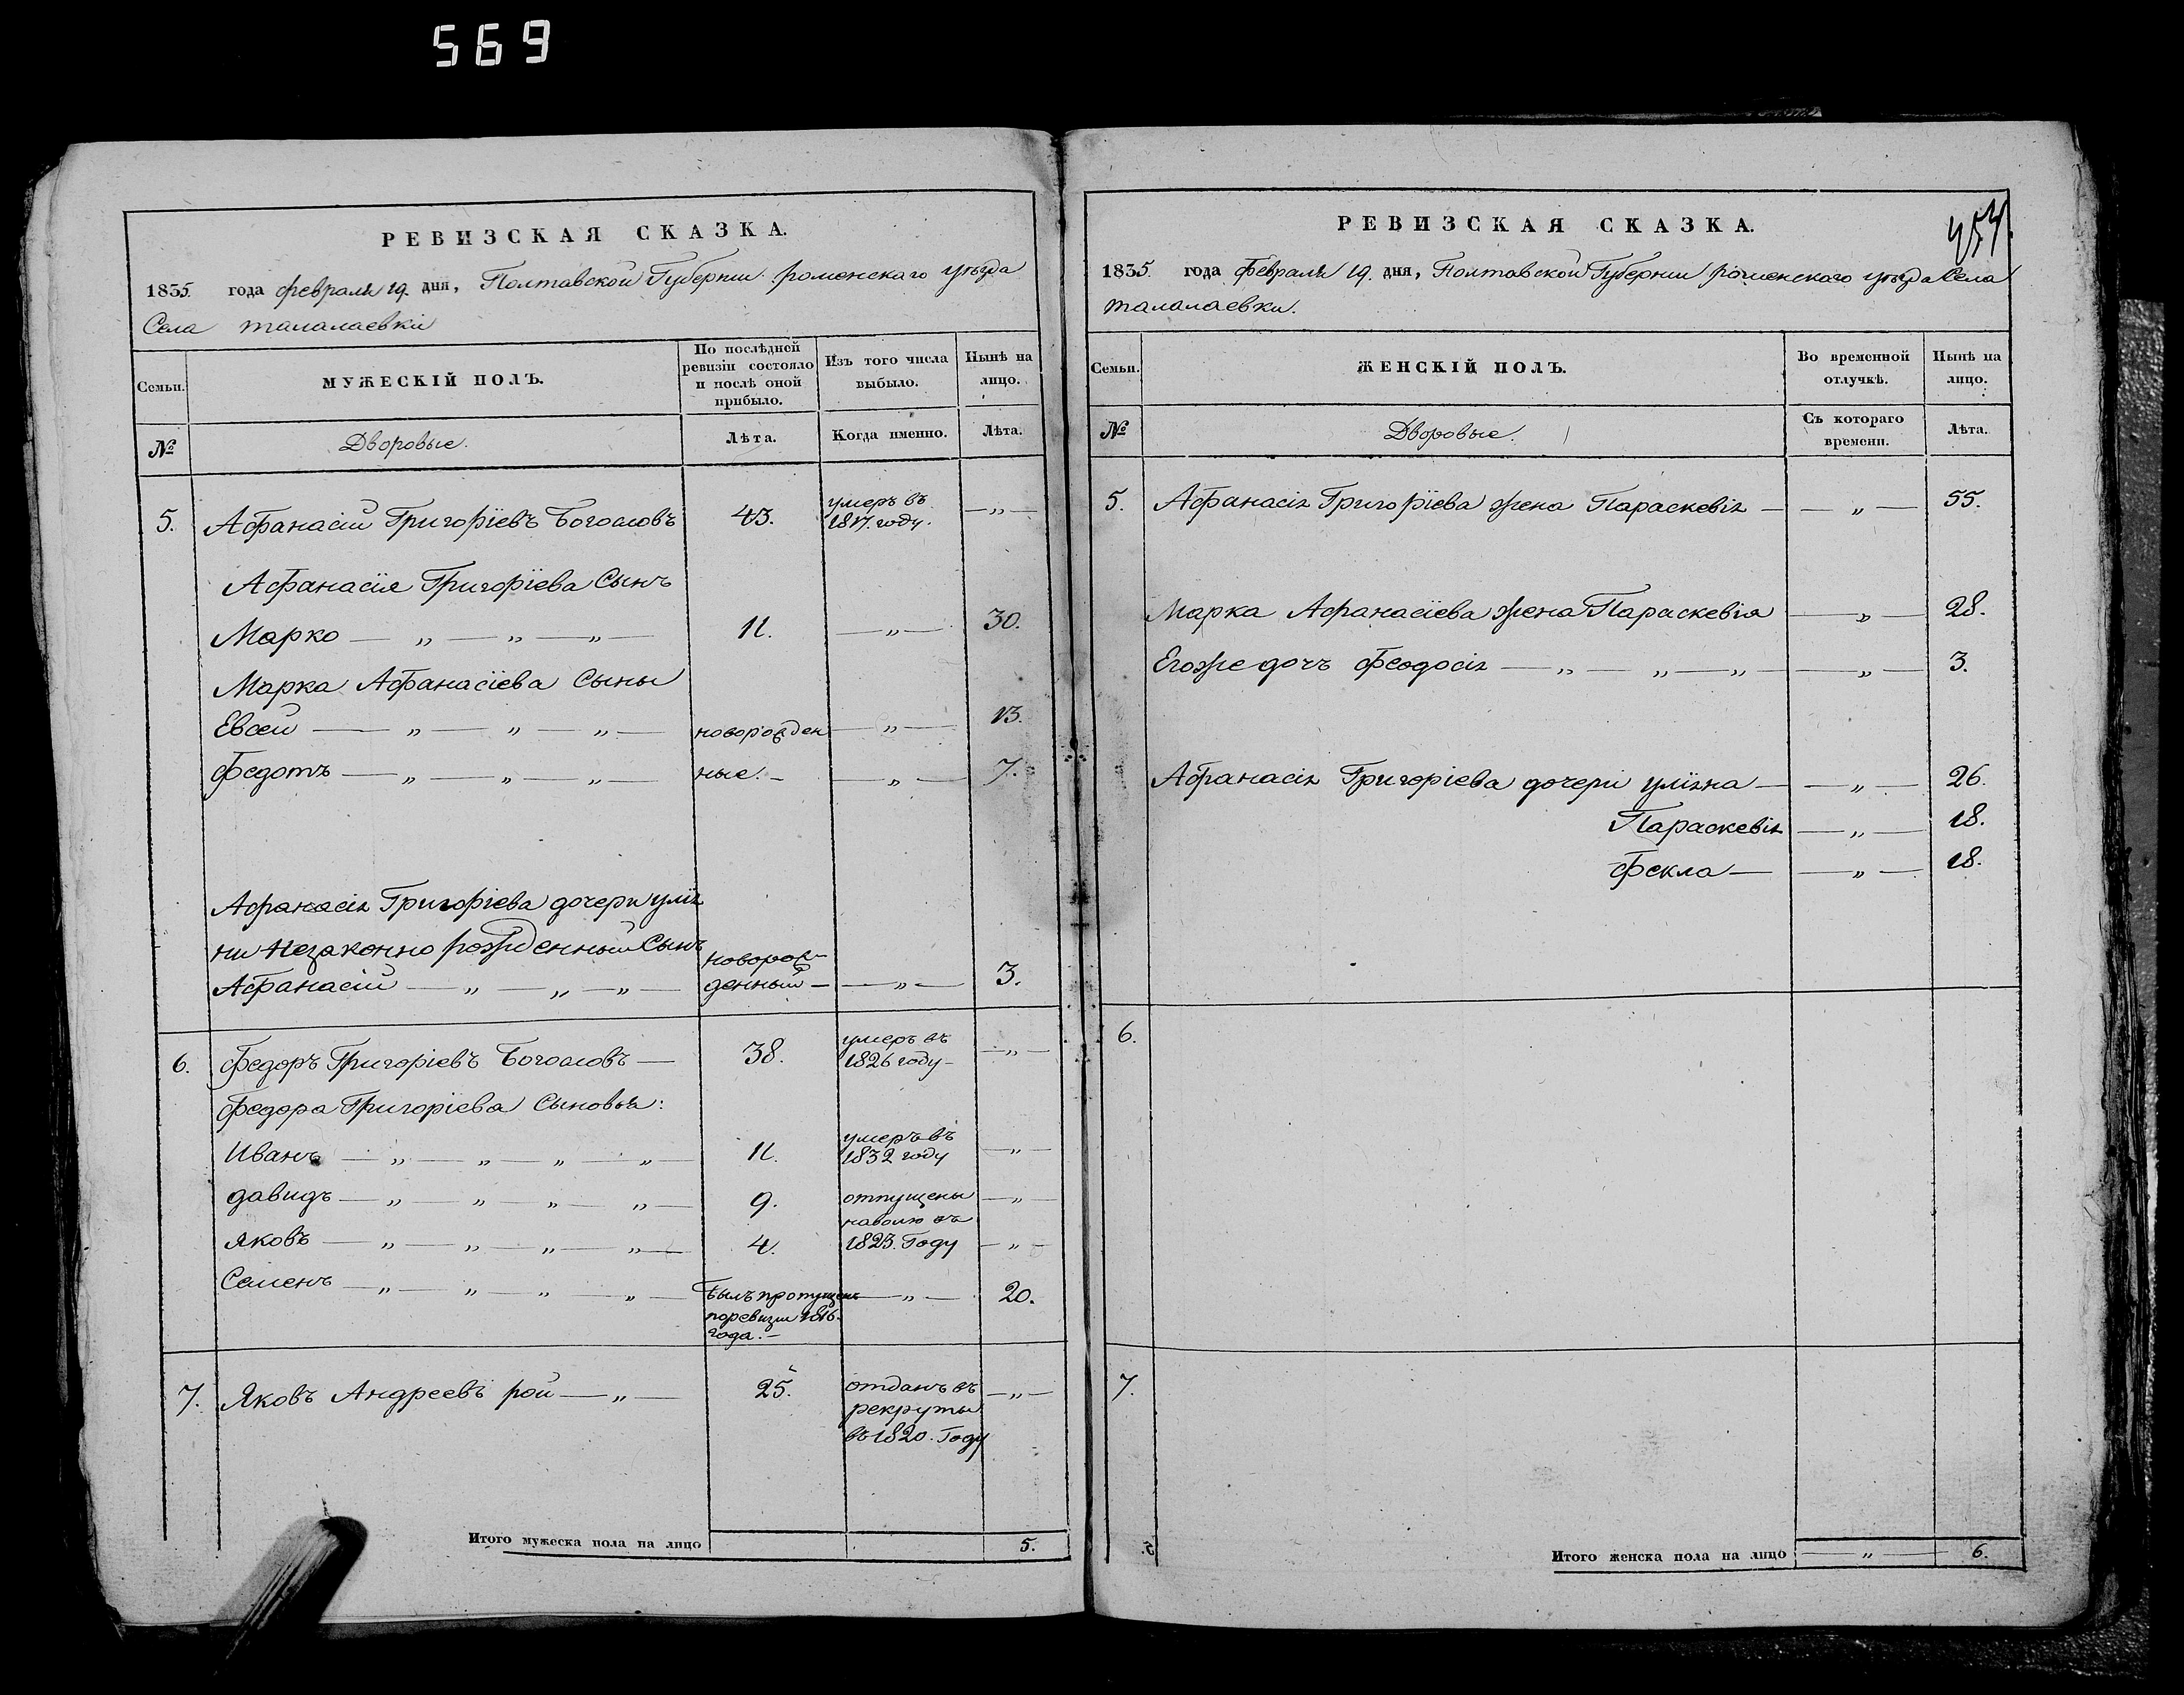 569
РЕВИЗСКАЯ СКАЗКА.
1835 года февраля 19 дня, Полтавской Губернии роменскаго уезда
Села талалаевки
Семьи.
МУЖЕСКІЙ ПОЛЪ.
По послѣдней ревизіи состояло и послѣ оной прибыло.
Изъ того числа выбыло.
Нынѣ на лицо.
№
Дворовые.
Лѣта.
Когда именно.
Лѣта.
5. Афанасий Григорїевъ Богословъ 43. умеръ въ 1817. году. —„—
Афанасїя Григорїева Сынъ
Марко — „ — „ — „ — 11. —„— 30.
Марка Афанасїева Сыны
Евсей — „ — „ — „ — новорожден —„— 13.
Федотъ — „ — „ — „ — ные. - —„— 7.
Афанасія Григорїева дочери улія
ни незаконно рожденный Сынъ
Афанасій — „ — „ — „ — новорож-
денный — —„— 3.
6. Федоръ Григоріевъ Богословъ — 38. умеръ въ 1826 году - —„—
Федора Григоріева Сыновья:
Иванъ — „ — „ — „ — „ — 11. умеръ въ 1832 году —„—
давидъ — „ — „ — „ — „ — 9. отпущены —„—
наволю въ
яковъ — „ — „ — „ — „ — 4. 1823. Году —„—
Семенъ — „ — „ — „ — „ — Былъ пропущенъ —„— 20.
поревизии 1816.
года. -
7. Яковъ Андреевъ рой — „ — 25. отданъ въ —„—
рекруты
въ 1820. Году
Итого мужеска пола на лицо 5.
РЕВИЗСКАЯ СКАЗКА.
454.
1835 года февраля 19. дня, Полтавской Губернии роменского уезда Села
талалаевки.
Семьи.
ЖЕНСКІЙ ПОЛЪ.
Во временной отлучкѣ.
Нынѣ на лицо.
№
Дворовые.
Съ котораго времени.
Лѣта.
5. Афанасія Григорїева жена Параскевія — —„— 55.
Марка Афанасїева жена Параскевія —„— 28.
Егоже дочъ Феодосія — „ — „ — „ — —„— 3.
Афанасія Григоріева дочери уліяна — —„— 26.
Параскевія —„— 18.
Фекла — —„— 18.
6.
7.
Итого женска пола на лицо —„— 6.